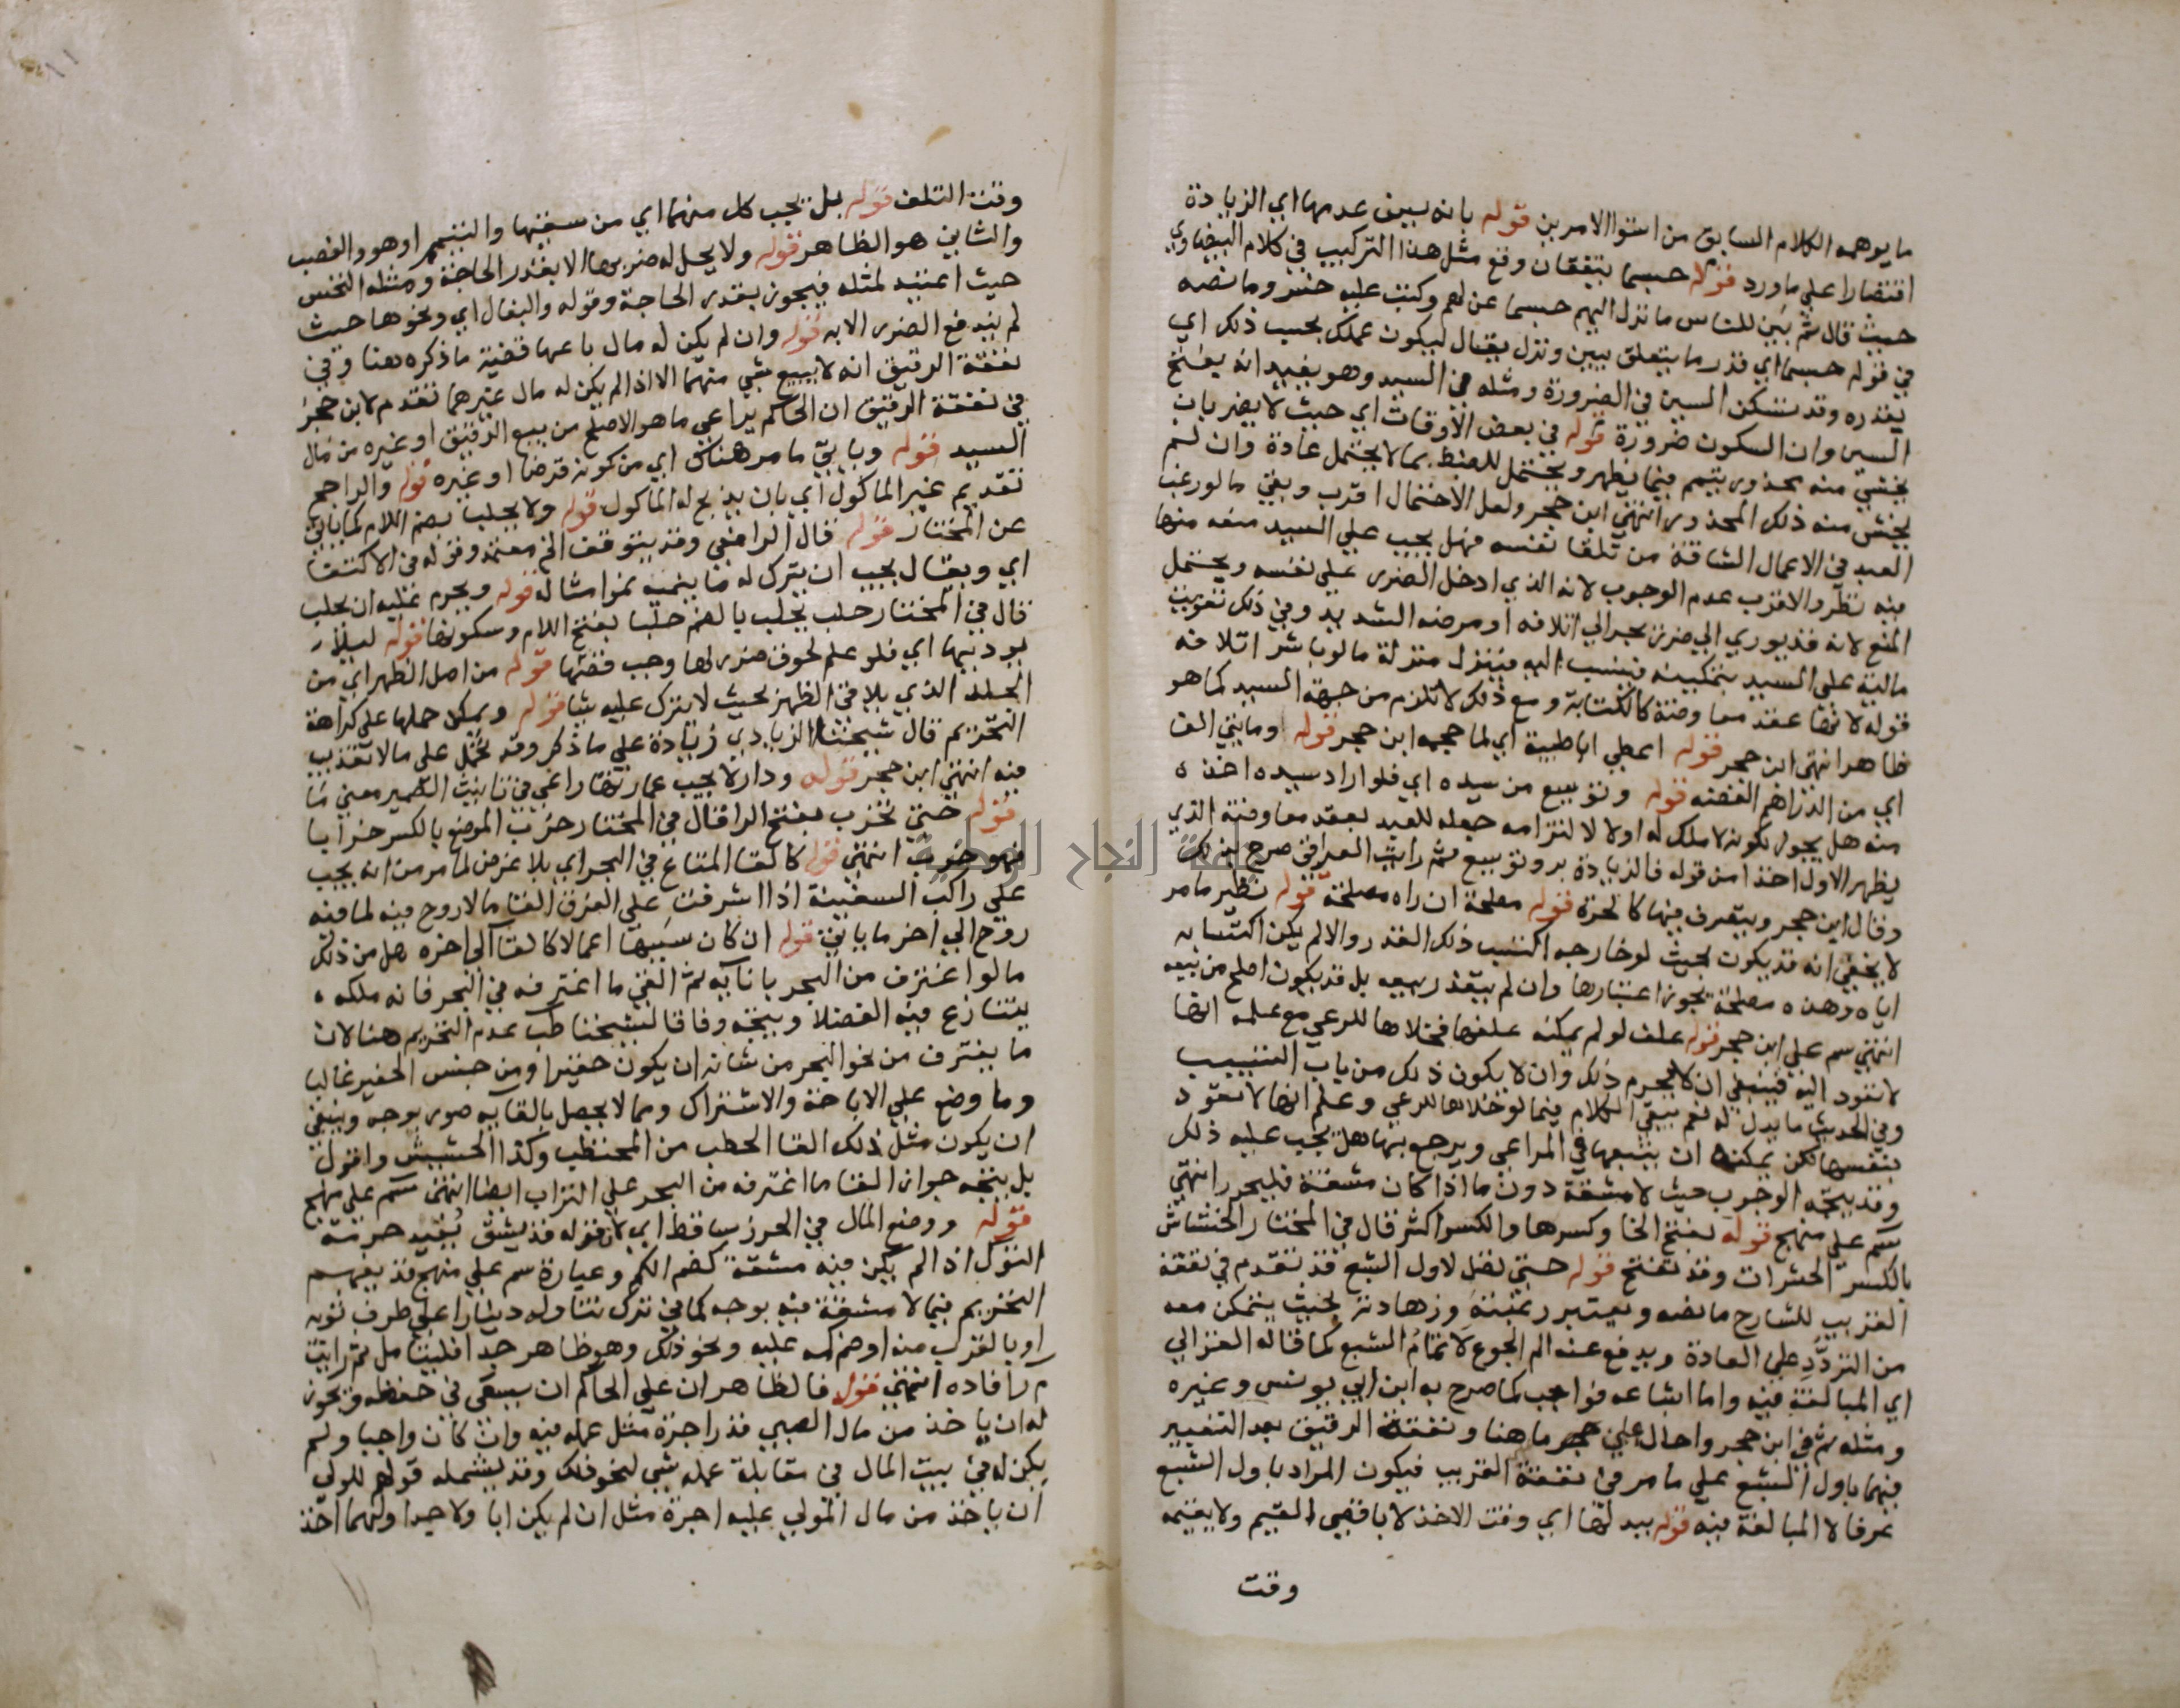 ما يوهمه الكلام السابق من استوا الامرين قوله بانه يبين عدمها اي الزيادة
اقتصارا علي ماورد قوله حسبما يتفقان وقع مثل هذا التركيب في كلام البيضاوي
حيث قال ثم بين للناس ما نزل اليهم حسبما عن لهم وكتب عليه خسرو ما نصه
في قوله حسبما اي قدر ما يتعلق ببين ونزل يقال ليكون عملك بحسب ذلك اي
بقدره وقد تسكن السين في الضرورة ومثله في السيد وهو يفيد انه بفتح
السين وان السكون ضرورة قوله في بعض الاوقات اي حيث لا يضر بان
يخشي منه محذور يتيمم فيما يظهر ويحتمل للضبط بما لا يحتمل عادة وان لم
يخش منه ذلك المحذور انتهي ابن حجر ولعل الاحتمال اقرب وبقي ما لو رغب
العبد في الاعمال الشاقة من تلقا نفسه فهل يجب علي السيد منعه منها
فيه نظر والاقرب عدم الوجوب لانه الذي ادخل الضرر علي نفسه ويحتمل
المنع لانه قد يوري الي ضرر يجر الي اتلافه او مرضه الشديد وفي ذلك تفويت
مالية علي السيد بتمكينه فينسب اليه فينزل منزلة ما لو باشر اتلافه
قوله لانها عقد معاوضة كالكتابة ومع ذلك لا تلزم من جهة السيد كما هو
ظاهر انتهي ابن حجر قوله اعطي ابا طيبة اي لما حجمه ابن حجر قوله وما بقي الف
اي من الدراهم الفضة قوله وتوبيع من سيده اي فلو اراد سيده اخذه
منه هل يجوز لكونه ملك له اولا لا لتزامه جعله للعبد بعقد معاوضة الذي
يظهر الاول اخذا من قوله فالزيادة بر وتوبيع ثم رايت العبراني صرح بذلك
وقال ابن حجر ويتصرف فيها كالحره قوله مصلحة ان راه مصلحة قوله نظير ما مر
لا يخفي انه قد يكون بحيث لو خارجه اكتسب ذلك القدر والا لم يكن اكتسابه
اياه وهذه مصلحة يجوز اعتبارها وان لم يتعذر بيعه بل قد يكون اصلح من بيعه
انتهي سم علي ابن حجر قوله علف لو لم يمكنه علفها فخلاها للرعي مع علمه انها
لا تعود اليه فينبغي ان لا يحرم ذلك وان لا يكون ذلك من باب التسييب
وفي الحديث ما يدل له نعم يبقي الكلام فيما لو خلاها للرعي وعلم انها لا تعود
بنفسها لكن يمكنه ان يتبعها في المراعي ويرجع بها هل يجب عليه ذلك
وقد يتجه الوجوب حيث لا مشقة دون ما اذا كان مشقة فليحرر انتهي
سم علي منهج قوله بفتح الخا وكسرها والكسر اكثر قال في المختار الخشاش
بالكسر الحشرات وقد تفتح قوله حتي تصل لاول الشبع قد تقدم في نفقة
القريب للشارح ما نصه ويعتبر رغبته وزهادته بحيث يتمكن معه
من التردد علي العادة ويدفع عنه الم الجوع لا تمام الشبع كما قاله الغزالي
اي المبالغة فيه واما اشباعه فواجب كما صرح به ابن ابي يونس وغيره
ومثله ثم في ابن حجر واحال علي حجر ما هنا ونفقة الرقيق بعد التعبير
فيهما باول الشبع علي ما مر في نفقة القريب فيكون المراد باول الشبع
عرفا لا المبالغة فيه قوله ببدلها اي وقت الاخذ لا باقصي القيم ولا بقيمه
وقت
وقت التلف قوله بل يجب كل منهما اي من سقيها والتيمم او هو والغصب
والثاني هو الظاهر قوله ولا يحل له ضربها الا بقدر الحاجة ومثله النخس
حيث اعتيد لمثله فيجوز بقدر الحاجة وقوله والبغال اي ونحوها حيث
لم يندفع الضرر الا به قوله وان لم يكن له مال باعها قضية ما ذكره هنا وفي
نفقة الرقيق انه لا يبيع شي منهما الا اذا لم يكن له مال غيرهما تقدم لابن حجر
في نفقة الرقيق ان الحاكم يراعي ما هو الاصلح من بيع الرقيق او غيره من مال
السيد قوله وياتي ما مر هناك اي من كونه قرضا او غيره قوله والراجح
تقديم غير الماكول اي بان يذبح له الماكول قوله ولا يحلب بضم اللام كما ياتي
عن المختار قوله قال الرافعي وقد يتوقف الخ معتمد وقوله في الاكتفا
اي ويقال يجب ان يترك له ما ينميه نمو امثاله قوله ويحرم عليه ان يحلب
قال في المختار حلب يحلب بالضم حلبا بفتح اللام وسكونها قوله ليلا
يوذيها اي فلو علم لحوق ضرر لها وجب قصها قوله من اصل الظهر اي من
الجلد الذي يلا في الظهر بحيث لا يترك عليه شيا قوله ويمكن حملها علي كراهة
التحريم قال شيخنا الزيادي زيادة علي ما ذكر وقد تحمل علي ما لا تعذيب
فيه انتهي ابن حجر قوله ودار لا يجب عمارتها راعي في تانيث الضمير معني ما
قوله حتي تخرب بفتح الرا قال في المختار خرب الموضع بالكسر خرابا
فهو خرب انتهي قوله كالقا المتاع في البحر اي بلا غرض لما مر من انه يجب
علي راكب السفينة اذا اشرفت علي الغرق القا ما لا روح فيه لما فيه
روح الي اخر ما ياتي قوله ان كان سببها اعمالا كالقا الي اخره هل من ذلك
ما لو اغترف من البحر باناآيه ثم القي ما اغترفه في البحر فانه ملكه
يتنازع فيه الفضلا ويتجه وفاقا لشيخنا طب عدم التحريم هنا لان
ما يغترف من نحو البحر من شانه ان يكون حقيرا ومن جنس الحقير غالبا
وما وضع علي الاباحة والاشتراك ومما لا يحصل بالقايه ضرر بوجه وينبغي
ان يكون مثل ذلك القا الحطب من المحتطب وكذا الحشيش واقول
بل يتجه جواز القا ما اغترفه من البحر علي التراب ايضا انتهي سم علي منهج
قوله ووضع المال في الحرز ساقط اي لان قوله قد يشق يفيد حرمة
الترك اذا لم يكن فيه مشقة كضم الكم وعبارة سم علي منهج قد يفهم
التحريم فيما لا مشقة فيه بوجه كما في ترك تناوله دينارا علي طرف ثوبه
او بالقرب منه او ضم كمه عليه ونحو ذلك وهو ظاهر جدا فليتامل ثم رايت
م ر افاده انتهي قوله فالظاهر ان علي الحاكم ان يسعي في حفظه وتجوز
له ان ياخذ من مال الصبي قدر اجرة مثل عمله فيه وان كان واجبا ولم
يكن له في بيت المال في مقابلة عمله شي لنحو ذلك وقد يشمله قولهم للولي
ان ياخذ من مال المولي عليه اجرة مثل ان لم يكن ابا ولا جدا ولهما اخذ